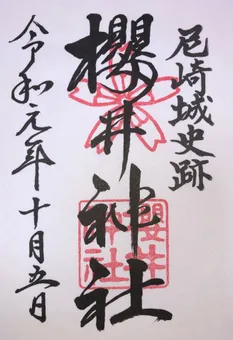 尼崎城史跡
櫻井神社
櫻井神社
令和元年十月五日